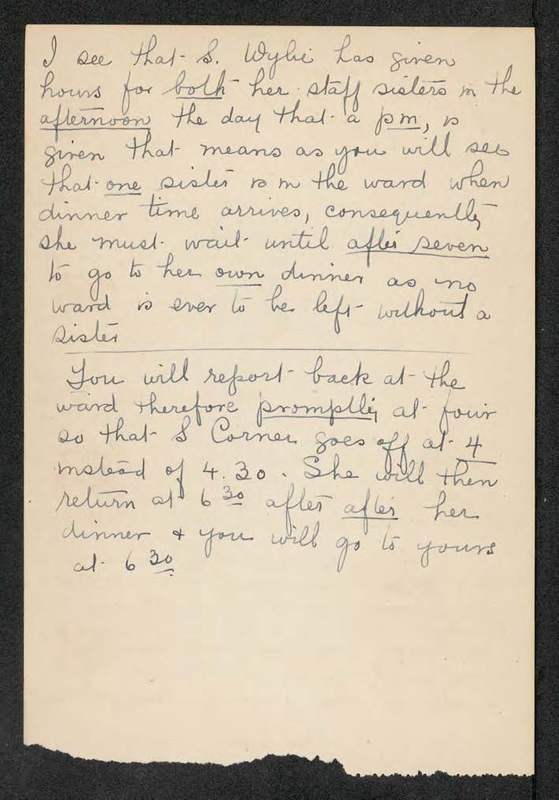 I see that S. Wylie has given
hours for both her staff sisters in the
afternoon the day that a pm, is
given that means as you will see
that one sister is in the ward when
dinner time arrives, consequently
she must wait until after seven
to go to her own dinner as no
ward is ever to be left without a
sister
You will report back at the
ward therefore promptly at four
so that S Corner goes off at 4
instead of 4.30. She will then
return at 6 30 after after her
dinner & you will go to yours
at 6 30